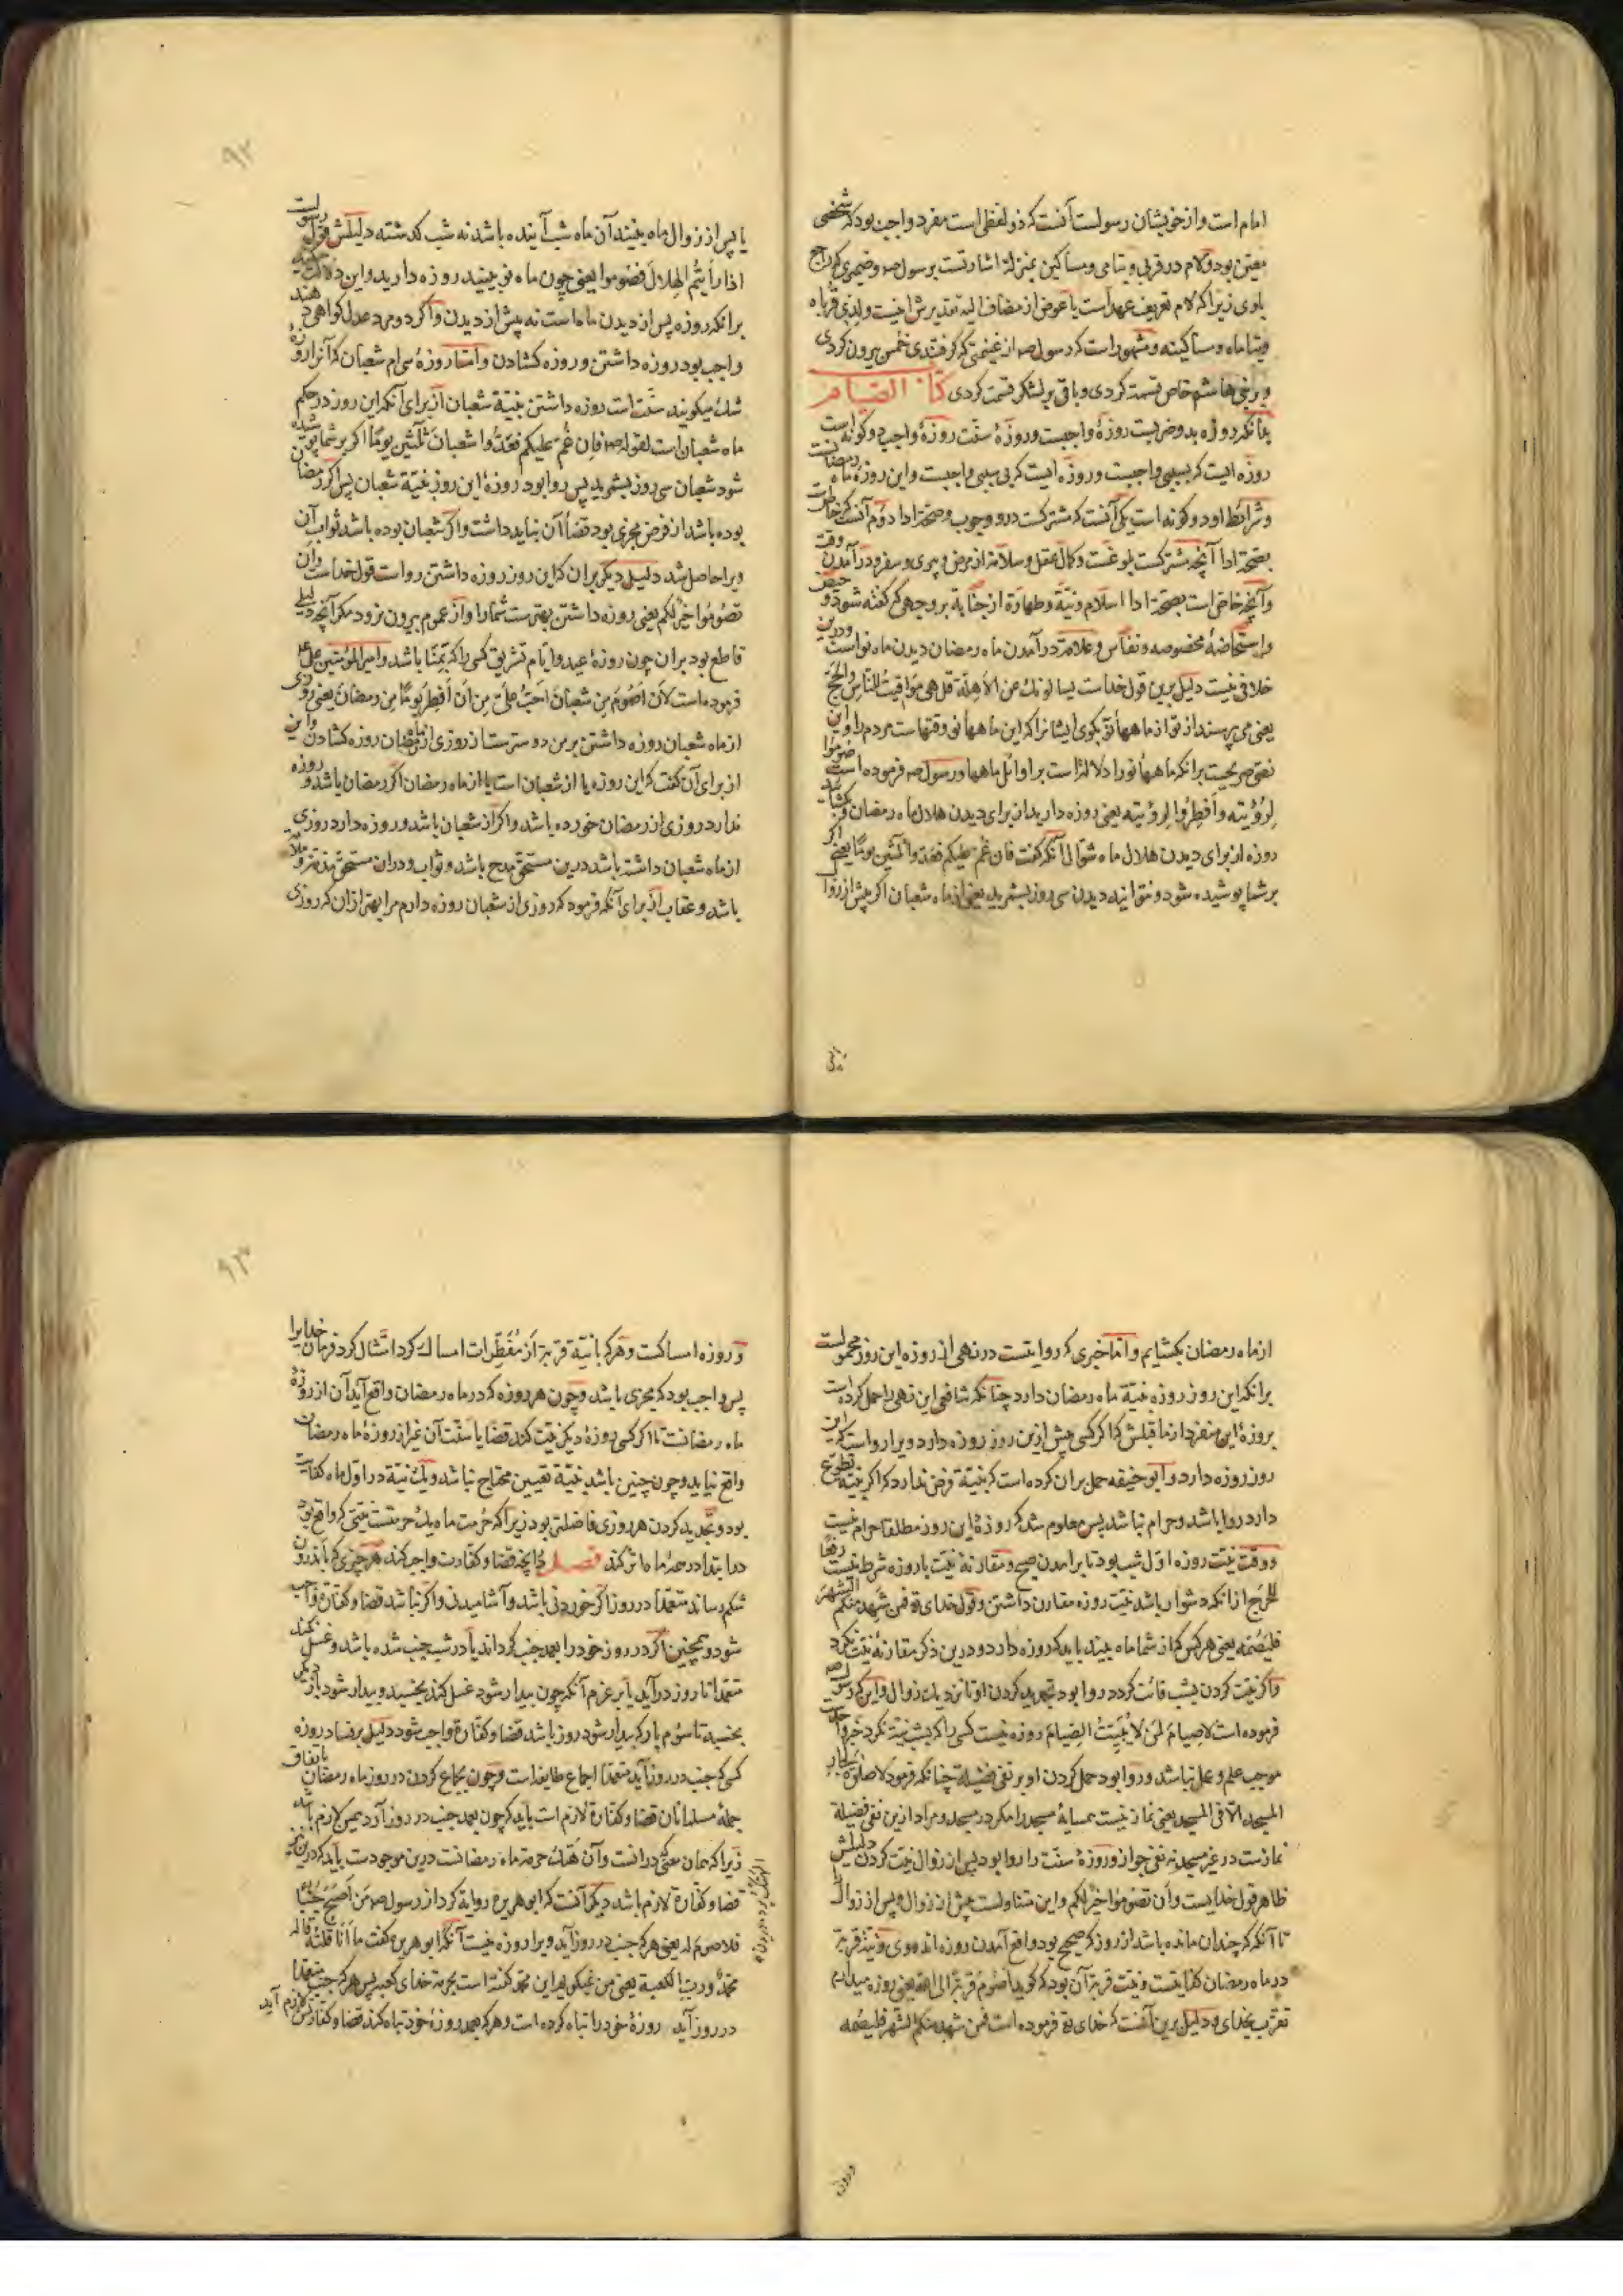 امام است و از خویشان رسولست آنست که ذو لفظی است مفرد واجب بود که شخصی
معین بود و لام در قربی و یتامی و مساکین بمنزلهٔ اشارتست برسول صه و ضمیری که راجع
باوی زیرا که لام تعریف عهد است یا عوض از مضاف الیه تقدیرش اینست ولذی قرباه
ویتاماه ومساکینه ومشهور است که رسول صه از غنیمتی که گرفتندی خمس بیرون کردی
و بر بنی هاشم خاص قسمة کردی و باقی بر لشکر قسمت کردی کتاب الصیام
بدانکه روزه بدو ضربست روزهٔ واجبست و روزهٔ سنّت روزهٔ واجب دو گونه است
روزه ایست که بسببی واجبست و روزه ایست که بی سببی واجبست و این روزهٔ ماه رمضانست
و شرایط او دو گونه است یکی آنست که مشترکست در و وجوب و صحّة ادا دوّم آنست که خاصّ است
بصحّة ادا آنچه مشترکست بلوغست و کمال عقل و سلامة از مرض و پیری و سفر و درآمدن وقت
و آنچه خاصّ است بصحّة ادا اسلام و نیّة و طهارة از جنابة بر وجهی که گفته شود و حیض
و استحاضهٔ مخصوصه و نفاس و علامة درآمدن ماه رمضان دیدن ماه نو است و درین
خلافی نیست دلیل برین قول خداست یسالونك عن الاهلة قل هی مواقیت للناس والحج
یعنی می پرسند از تو از ماهها نو بگوی ایشانرا که این ماهها نو وقتهاست مردم را و این
نصّی صریحست برانکه ماهها نو را دلالة است بر اوائل ماهها و رسول صه فرموده است صوموا
لرؤیته وأفطروا لرؤیته یعنی روزه دارید از برای دیدن هلال ماه رمضان و بگشایید
روزه از برای دیدن هلال ماه شوال آنگه گفت فان غم علیکم فعدوا ثلثین یوما یعنی اگر
بر شما پوشیده شود و نتوانید دیدن سی روز بشمرید یعنی از ماه شعبان اگر پیش از زوال
۹۲
یا پس از زوال ماه بینید آن ماه شب آینده باشد نه شب گذشته دلیلش قول رسولست
اذا رأیتم الهلال فصوموا یعنی چون ماه نو ببینید روزه دارید و این دلالت میکند
برانکه روزه پس از دیدن ماه است نه پیش از دیدن و اگر دو مرد عدل گواهی دهند
واجب بود روزه داشتن و روزه گشادن و امّا روزهٔ سی ام شعبان که آنرا روز
شك میگویند سنّت است روزه داشتن بنیّة شعبان از برای آنکه این روز در حکم
ماه شعبان است لقوله صه فان غم علیکم فعدوا شعبان ثلثین یوما اگر بر شما پوشیده
شود شعبان سی روز بشمرید پس روا بود روزهٔ این روز بنیّة شعبان پس اگر رمضان
بوده باشد از فرض مجزی بود قضاء آن نباید داشت و اگر شعبان بوده باشد ثواب آن
ویرا حاصل شد دلیل دیگر بران که این روز روزه داشتن رواست قول خداست وأن
تصوموا خیر لکم یعنی روزه داشتن بهترست شما را و از عموم بیرون نرود مگر آنچه دلیلی
قاطع بود بران چون روزهٔ عید و ایّام تشریق کسی را که بمنا باشد و امیرالمؤمنین علی ع
فرموده است لأن أصوم من شعبان احب علی من ان أفطر یوما من رمضان یعنی روزی
از ماه شعبان روزه داشتن بر من دوسترست از روزی از رمضان روزه گشادن و این
از برای آن گفت که این روزه یا از شعبان است یا از ماه رمضان اگر رمضان باشد و روزه
ندارد روزی از رمضان خورده باشد و اگر از شعبان باشد و روزه دارد روزی
از ماه شعبان داشته باشد درین مستحقّ مدح باشد و ثواب و دران مستحقّ مذمّة و ملامة
باشد و عقاب از برای آنکه فرمود که روزی از شعبان روزه دارم مرا بهتر ازان که روزی
از ماه رمضان بگشایم و امّا خبری که روایتست در نهی از روزه این روز محمولست
برانکه این روز روزه بنیّة ماه رمضان دارد چنانکه شافعی این نهی را حمل کرده است
بروزهٔ این منفرد از ما قبلش که اگر کسی پیش ازین روز روزه دارد ویرا رواست که این
روز روزه دارد و ابو حنیفه حمل بران کرده است که بنیّة فرض ندارد که اگر بنیّة تطوع
دارد روا باشد و حرام نباشد پس معلوم شد که روزهٔ این روز مطلقا حرام نیست
و وقت نیّت روزه اوّل شب بود تا برامدن صبح و مقارنهٔ نیّت با روزه شرط نیست رفعا
للحرج از انکه دشوار باشد نیّت روزه مقارن داشتن و قول خدای تع فمن شهد منکم الشهر
فلیصمه یعنی هر کس که از شما ماه بیند باید که روزه دارد و درین ذکر مقارنهٔ نیّت نکرد
و اگر نیّت کردن بشب فائت گردد روا بود تجدید کردن او تا نزدیك زوال و این که رسول صه
فرموده است لا صیام لمن لا یبیت الصیام روزه نیست کسی را که بشب نیّة نکرد خبر واحد است
موجب علم و عمل نباشد و روا بود حمل کردن او بر نفی فضیلة چنانکه فرمود لا صلوة لجار
المسجد الا فی المسجد یعنی نماز نیست همسایهٔ مسجد را مگر در مسجد و مراد ازین نفی فضیلة
نمازست در غیر مسجد نه نفی جواز و روزهٔ سنّت را روا بود پس از زوال نیّت کردن دلیلش
ظاهر قول خدایست وأن تصوموا خیر لکم و این متناولست پیش از زوال و پس از زوال را
تا آنگه که چندان مانده باشد از روز که صحیح بود واقع آمدن روزه اندروی و نیّة قربة
در ماه رمضان کفایتست و نیّت قربة آن بود که گوید اصوم قربة الی الله یعنی روزه میدارم
تقرّب بخدای و دلیل برین آنست که خدای تع فرموده است فمن شهد منکم الشهر فلیصمه
و روزه
۹۳
و روزه امساکست و هر که بانیّة قربة از مفطّرات امساك کرد امتثال کرد فرمان خدایرا
پس واجب بود که مجزی باشد و چون هر روزه که در ماه رمضان واقع آید آن از روزهٔ
ماه رمضانست تا اگر کسی روزهٔ دیگر نیّت کند قضا یا سنّت آن غیر از روزهٔ ماه رمضان
واقع نیاید و چون چنین باشد بنیّة تعیین محتاج نباشد و یك نیّة در اوّل ماه کفایت
بود و تجدید کردن هر روزی فاضلتر بود زیرا که حرمت ماه یك حرمتست نیّتی که واقع بود
در ابتدا در همهٔ ماه اثر کند فصل و آنچه قضا و کفّارت واجب کند هر چیزی که باندرون
شکم رساند متعمّدا در روز اگر خوردنی باشد و آشامیدنی و اگر نباشد قضا و کفّارة واجب
شود و همچنین اگر در روز خود را بعمد جنب گرداند یا در شب جنب شده باشد و غسل نکند
متعمّدا تا روز درآید یا بر عزم آنکه چون بیدار شود غسل کند بخسبد و بیدار شود باز دیگر
بخسبد تا سوّم بار که بیدار شود روز باشد قضا و کفّارة واجب شود دلیل بر فساد روزه
کسی که جنب در روز آید متعمّدا اجماع طایفه است و چون بجماع کردن در روز ماه رمضان باتفاق
جملهٔ مسلمانان قضا و کفّارة لازم است باید که چون بعمد جنب در روز آید همین لازم باشد
زیرا که همان معنی درانست و آن هتك حرمة ماه رمضانست درین موجودست باید که درین نیز
قضا و کفّارة لازم باشد دیگر آنست که ابو هریره روایة کرد از رسول صه من أصبح جنبا
فلا صوم له یعنی هر که جنب در روز آید ویرا روزه نیست آنگه ابو هریره گفت ما أنا قلته قاله
محمد ورب الکعبة یعنی من نمیگویم این محمّد گفته است بحرمة خدای کعبه پس هر که جنب متعمّدا
در روز آید روزهٔ خود را تباه کرده است و هر که بعمد روزهٔ خود تباه کند قضا و کفّارتش لازم آید